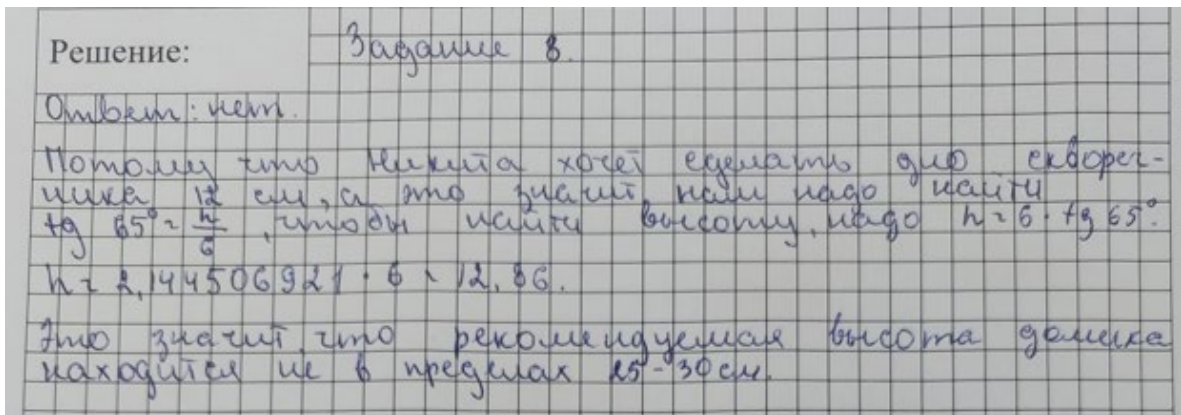 Решение:
Задание 8.
Ответ: нет.
Потому что Никита хочет сделать дно сквореч-
ника 12 см, а это значит нам надо найти
tg 65° = h/6, чтобы найти высоту, надо h = 6 · tg 65°.
h = 2,144506921 · 6 ≈ 12,86.
Это значит, что рекомендуемая высота домика
находится не в пределах 25-30 см.